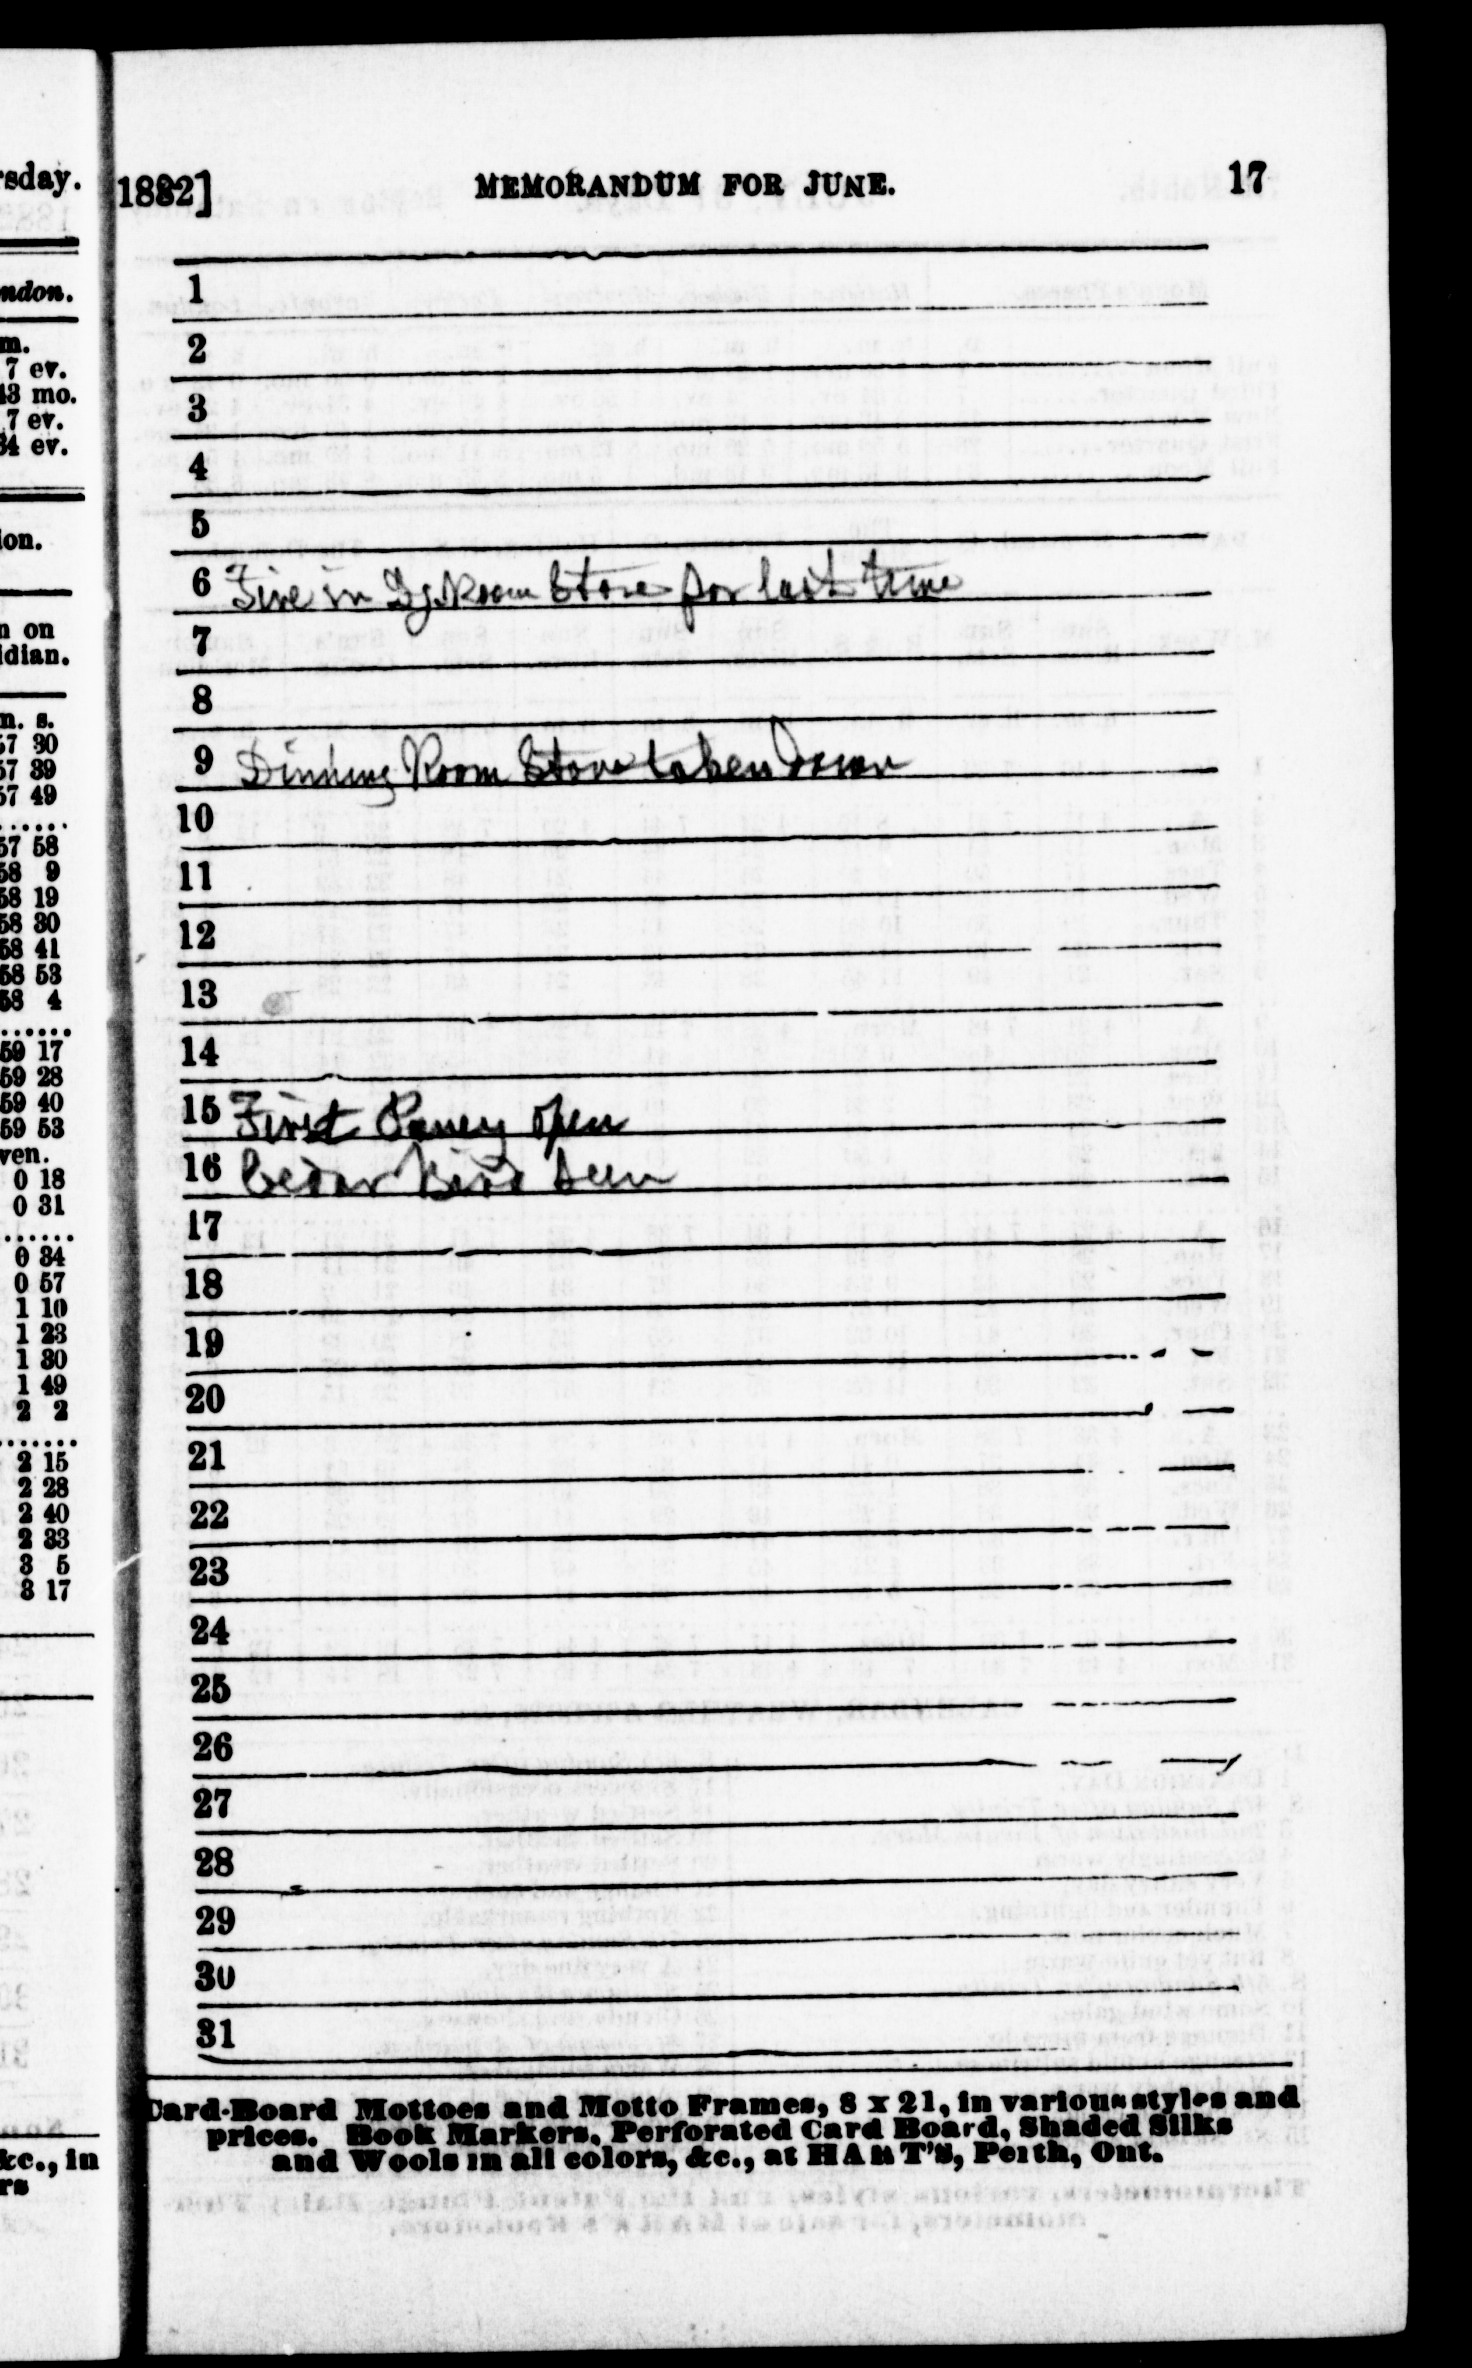 rsday.
ndon.
m.
7 ev.
43 mo.
7 ev.
34 ev.
ion.
n on
idian.
n. s.
57 30
57 39
57 49
......
57 58
58 9
58 19
58 30
58 41
58 53
58 4
......
59 17
59 28
59 40
59 53
ven.
0 18
0 31
......
0 34
0 57
1 10
1 23
1 30
1 49
2 2
......
2 15
2 28
2 40
2 33
3 5
3 17
&c., in
rs
1882] MEMORANDUM FOR JUNE. 17
1
2
3
4
5
6 Fire in Dg Room Stove for last time
7
8
9 Dinning Room Stove taken down
10
11
12
13
14
15 First Paney open
16 Cedar Bird seen
17
18
19
20
21
22
23
24
25
26
27
28
29
30
31
Card-Board Mottoes and Motto Frames, 8 x 21, in various styles and
prices. Book Markers, Perforated Card Board, Shaded Silks
and Wools in all colors, &c., at HART'S, Perth, Ont.